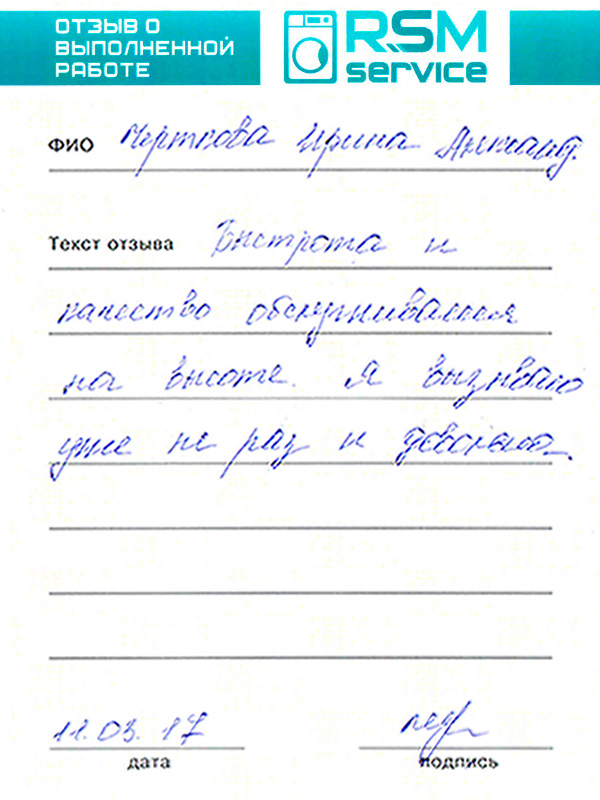 ОТЗЫВ О
ВЫПОЛНЕННОЙ
РАБОТЕ
RSM
service
ФИО Черткова Ирина
Текст отзыва Быстрота и
качество обслуживания
на высоте. Я вызываю
уже не раз и довольна.
11.03.17
дата подпись